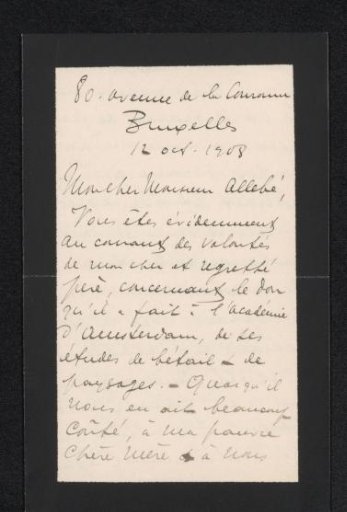 80. avenue de la Couronne
Bruxelles
12 oct. 1903
Mon cher Monsieur Allebé,
Vous êtes évidemment
au courant des volontés
de mon cher et regretté
père, concernant le don
qu'il a fait à l'académie
d'Amsterdam, de ses
études de bétail & de
paysages. – Quoiqu'il
nous en ait beaucoup
coûté, à ma pauvre
chère mère & à nous